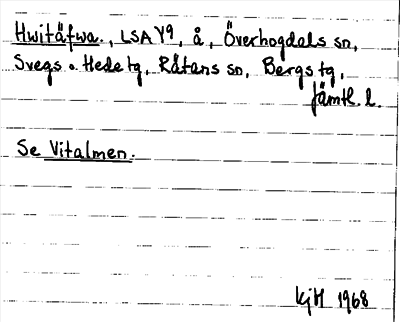 Hwitäfwa., LSA Y9, å, Överhogdals sn,
Svegs o. Hede tg, Råtans sn, Bergs tg,
Jämtl. l.
Se Vitalmen.
KjH 1968